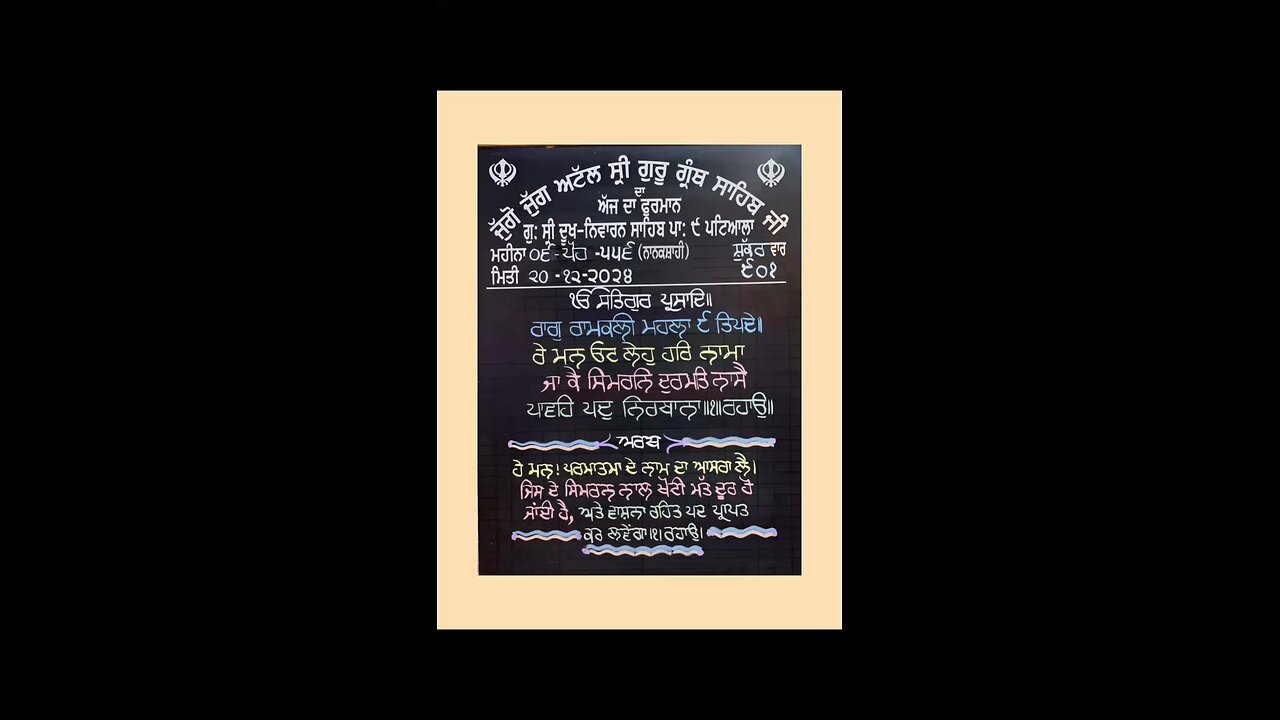 ਜੁੱਗੋ ਜੁੱਗ ਅਟੱਲ ਸ੍ਰੀ ਗੁਰੂ ਗ੍ਰੰਥ ਸਾਹਿਬ ਜੀ
ਦਾ
ਅੱਜ ਦਾ ਫੁਰਮਾਨ
ਗੁ: ਸ੍ਰੀ ਦੂਖ-ਨਿਵਾਰਨ ਸਾਹਿਬ ਪਾ: ੯ ਪਟਿਆਲਾ
ਮਹੀਨਾ ੦੬ - ਪੋਹ -੫੫੬ (ਨਾਨਕਸ਼ਾਹੀ) ਸ਼ੁੱਕਰ ਵਾਰ
ਮਿਤੀ ੨੦ -੧੨-੨੦੨੪ ੯੦੧
ੴ ਸਤਿਗੁਰ ਪ੍ਰਸਾਦਿ॥
ਰਾਗੁ ਰਾਮਕਲੀ ਮਹਲਾ ੯ ਤਿਪਦੇ॥
ਰੇ ਮਨ ਓਟ ਲੇਹੁ ਹਰਿ ਨਾਮਾ
ਜਾ ਕੈ ਸਿਮਰਨਿ ਦੁਰਮਤਿ ਨਾਸੈ
ਪਾਵਹਿ ਪਦੁ ਨਿਰਬਾਨਾ॥੧॥ਰਹਾਉ॥
ਅਰਥ
ਹੇ ਮਨ! ਪਰਮਾਤਮਾ ਦੇ ਨਾਮ ਦਾ ਆਸਰਾ ਲੈ।
ਜਿਸ ਦੇ ਸਿਮਰਨ ਨਾਲ ਖੋਟੀ ਮੱਤ ਦੂਰ ਹੋ
ਜਾਂਦੀ ਹੈ, ਅਤੇ ਵਾਸ਼ਨਾ ਰਹਿਤ ਪਦ ਪ੍ਰਾਪਤ
ਕਰ ਲਵੇਂਗਾ।੧।ਰਹਾਉ।